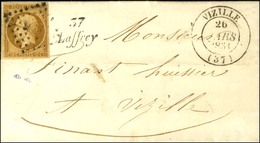 37
Laffrey
VIZILLE
26
MARS
(37)
Monsieur
Finant huissier
A Vizille